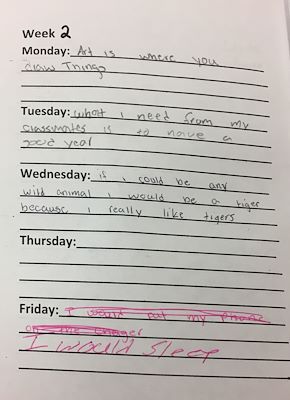 Week 2
Monday: Art is where you
draw Things
Tuesday: what i need from my
classmates is to have a
good year
Wednesday: if i could be any
wild animal i would be a tiger
because i really like tigers
Thursday:
Friday: I would put my phone
on the
I would sleep